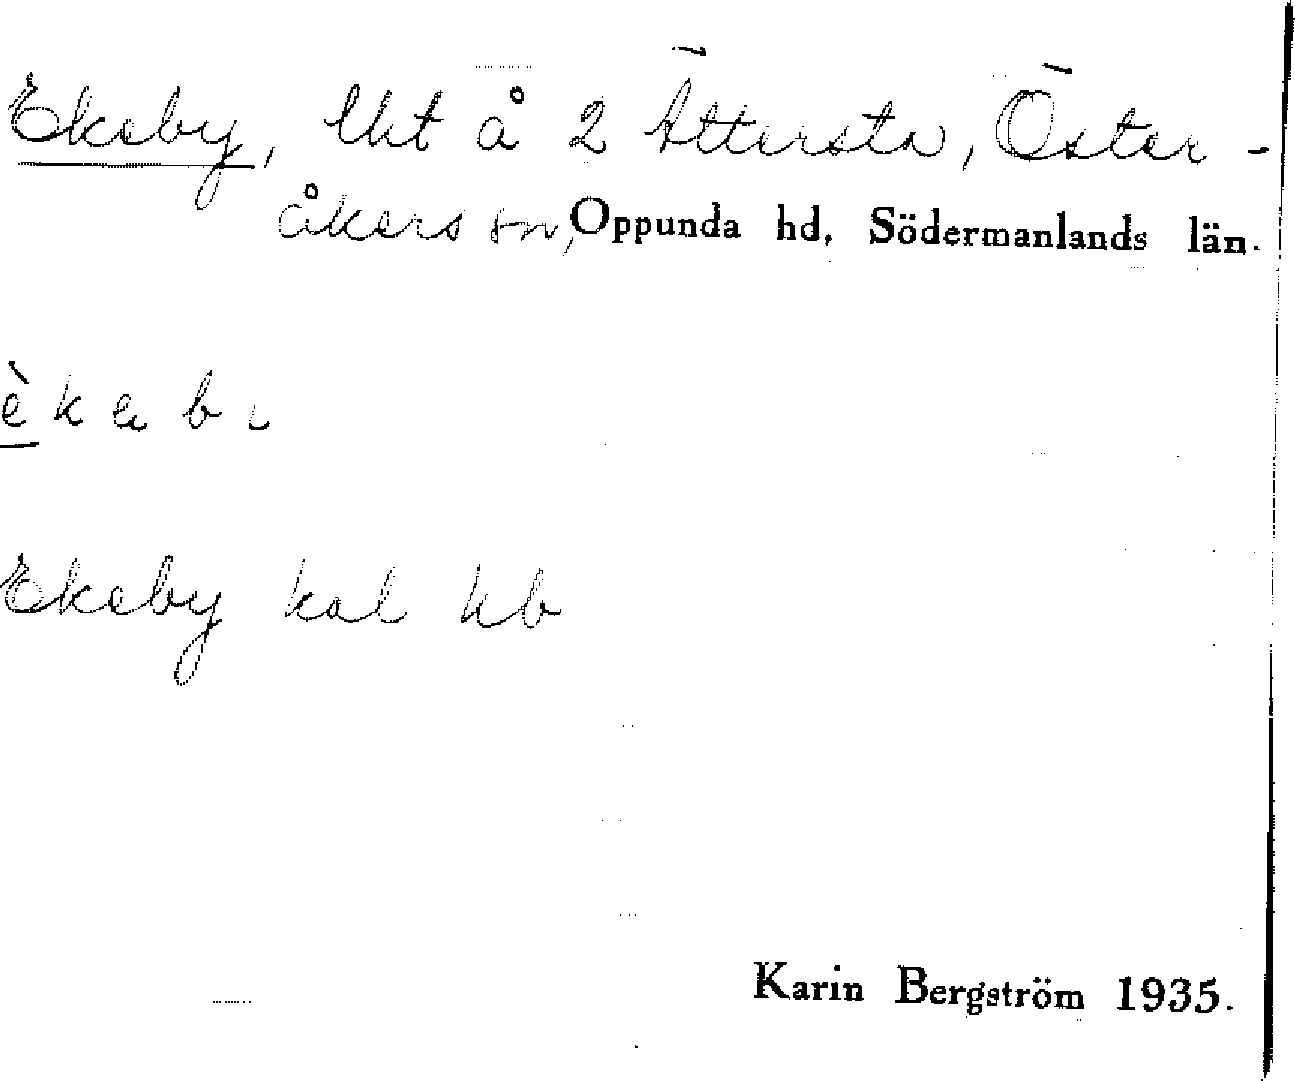 Ekeby, lht å 2 Ättersta, Öster-
åkers sn, Oppunda hd, Södermanlands län.
èkebɩ
Ekeby kal hb
Karin Bergström 1935.